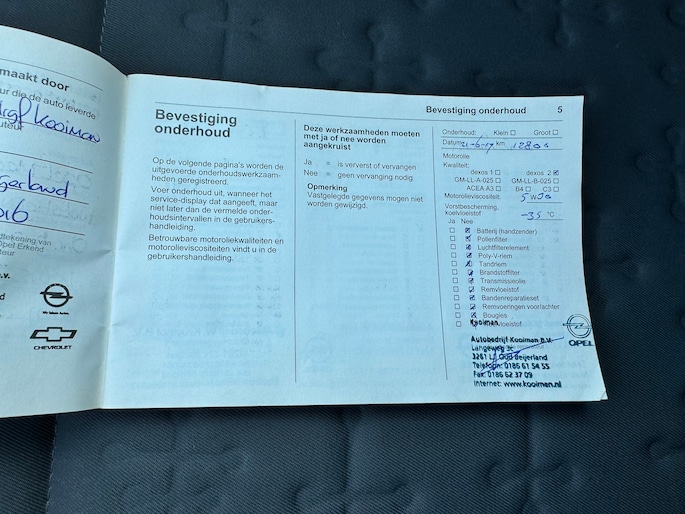 maakt door
ur die de auto leverde
Kooiman
uteur
gerland
016
dtekening van
Opel Erkend
teur
.v.
d
Wir leben Autos
CHEVROLET
Bevestiging
onderhoud
Op de volgende pagina's worden de
uitgevoerde onderhoudswerkzaam-
heden geregistreerd.
Voer onderhoud uit, wanneer het
service-display dat aangeeft, maar
niet later dan de vermelde onder-
houdsintervallen in de gebruikers-
handleiding.
Betrouwbare motoroliekwaliteiten en
motorolieviscositeiten vindt u in de
gebruikershandleiding.
Deze werkzaamheden moeten
met ja of nee worden
aangekruist
Ja = is ververst of vervangen
Nee = geen vervanging nodig
Opmerking
Vastgelegde gegevens mogen niet
worden gewijzigd.
Bevestiging onderhoud 5
Onderhoud: Klein ☐ Groot ☐
Datum: 21-6-17 km
Motorolie
Kwaliteit:
dexos 1 ☐ dexos 2 ☒
GM-LL-A-025 ☐ GM-LL-B-025 ☐
ACEA A3 ☐ B4 ☐ C3 ☐
Motorolieviscositeit: 5 W 30
Vorstbescherming,
koelvloeistof -35 °C
Ja Nee
☐ ☒ Batterij (handzender)
☐ ☒ Pollenfilter
☐ ☒ Luchtfilterelement
☐ ☒ Poly-V-riem
☐ ☒ Tandriem
☐ ☒ Brandstoffilter
☐ ☒ Transmissieolie
☐ ☒ Remvloeistof
☐ ☒ Bandenreparatieset
☐ ☒ Remvoeringen voor/achter
☐ ☒ Bougies
Kooiman
Autobedrijf Kooiman B.V.
Langeweg 3c
3261 LJ Oud Beijerland
Telefoon: 0186 61 54 55
Fax: 0186 62 37 09
Internet: www.kooiman.nl
OPEL